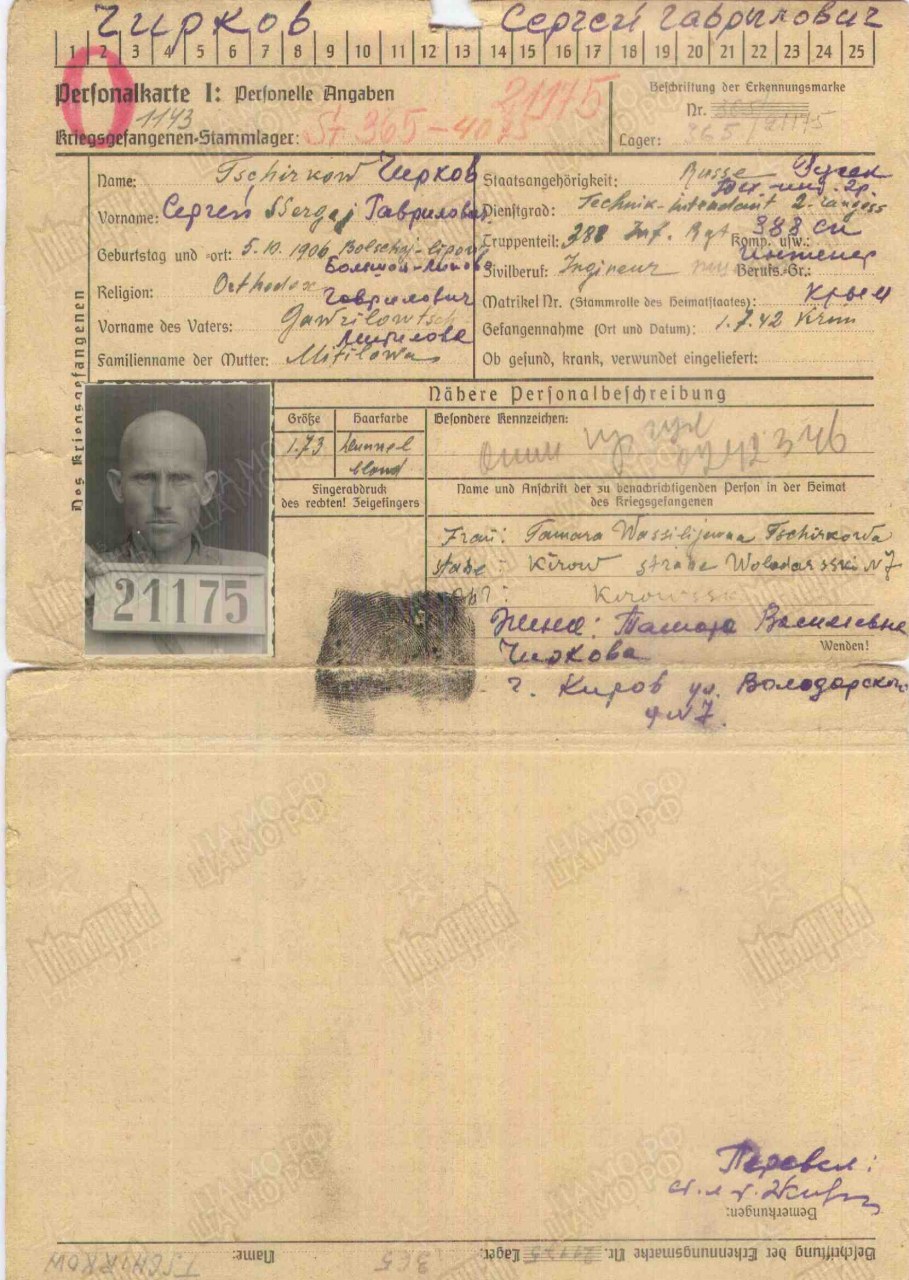 Чирков Сергей Гаврилович
1 2 3 4 5 6 7 8 9 10 11 12 13 14 15 16 17 18 19 20 21 22 23 24 25
Personalkarte I: Personelle Angaben
21175
Beschriftung der Erkennungsmarke
Nr.
1143
Kriegsgefangenen-Stammlager: St 365 - 4075
Lager: 365 / 21175
Des Kriegsgefangenen
Name: Tschirkow Чирков
Vorname: Сергей Ssergej Гаврилович
Geburtstag und -ort: 5.10.1906 Bolschoj-Lipowo
Religion: Orthodox
Гаврилович
Vorname des Vaters: Gawrilowtsch
Митилова
Familienname der Mutter: Mitilowa
Staatsangehörigkeit: Russe
Dienstgrad: Technik-intendant 2. ranges
Truppenteil: 388 Inf. Rgt Komp. usw.: 388 сп
Инженер
Zivilberuf: Ingineur Berufs-Gr.:
Matrikel Nr. (Stammrolle des Heimatstaates): Крым
Gefangennahme (Ort und Datum): 1.7.42 Krim
Ob gesund, krank, verwundet eingeliefert:
21175
Nähere Personalbeschreibung
Größe Haarfarbe Besondere Kennzeichen:
1.73 dunkel blond
Fingerabdruck
des rechten! Zeigefingers
Name und Anschrift der zu benachrichtigenden Person in der Heimat
des Kriegsgefangenen
Frau: Tamara Wassilijewna Tschirkowa
Kirow Wolodarsski N7
Жена: Тамара Васильевна
Чиркова
Wenden!
г. Киров ул. Володарского
N7.
Перевел:
Bemerkungen:
Beschriftung der Erkennungsmarke Nr. 21175 Lager: 365 Name: TSCHIRKOW
ЦАМО РФ
Мемориал
НАРОДА